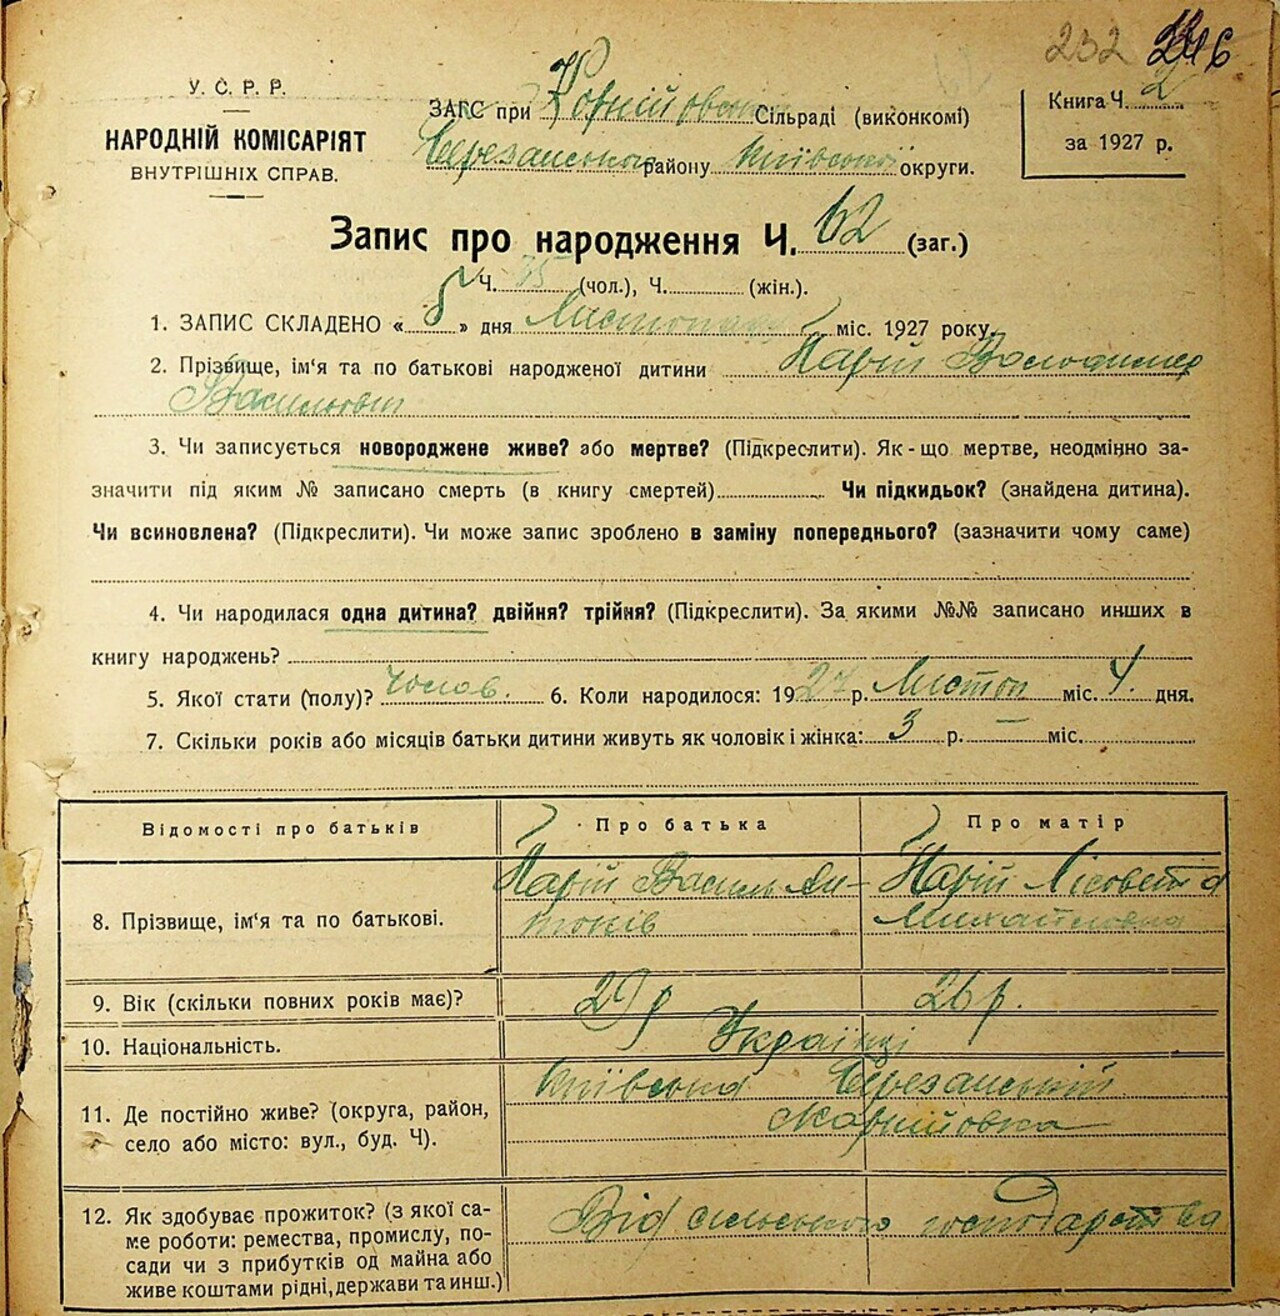 232 246
У. С. Р. Р.
НАРОДНІЙ КОМІСАРІЯТ
ВНУТРІШНІХ СПРАВ.
ЗАГС при Корнійовській Сільраді (виконкомі)
Березанського району Київської округи.
Книга Ч. 2
за 1927 р.
Запис про народження Ч. 62 (заг.)
Ч. 35 (чол.), Ч. (жін.).
1. ЗАПИС СКЛАДЕНО « 6 » дня Листопада міс. 1927 року.
2. Прізвище, ім'я та по батькові народженої дитини Парій Володимер
Васильович
3. Чи записується новороджене живе? або мертве? (Підкреслити). Як-що мертве, неодмінно за-
значити під яким № записано смерть (в книгу смертей) Чи підкидьок? (знайдена дитина).
Чи всиновлена? (Підкреслити). Чи може запис зроблено в заміну попереднього? (зазначити чому саме)
4. Чи народилася одна дитина? двійня? трійня? (Підкреслити). За якими №№ записано инших в
книгу народжень?
5. Якої стати (полу)? чолов. 6. Коли народилося: 1927 р. Листоп міс. 4. дня.
7. Скільки років або місяців батьки дитини живуть як чоловік і жінка: 3 р. — міс.
Відомості про батьків Про батька Про матір
8. Прізвище, ім'я та по батькові. Парій Василь Ан- Парій Лісовета
тонів Михайловна
9. Вік (скільки повних років має)? 29 р 26 р.
10. Національність. Українці
11. Де постійно живе? (округа, район, Київська Березанський
село або місто: вул., буд. Ч). Карнійовка
12. Як здобуває прожиток? (з якої са- Від сильського господарства
ме роботи: ремества, промислу, по-
сади чи з прибутків од майна або
живе коштами рідні, держави та инш.)